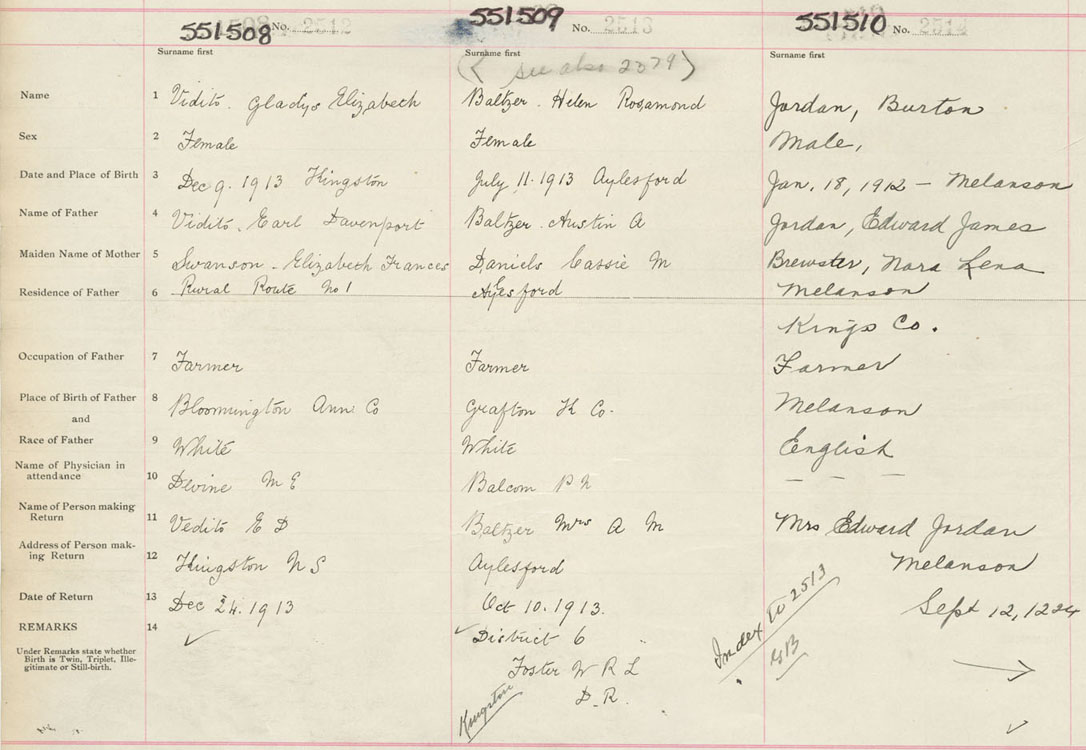 551508 No. 2512
551509 No. 2513
551510 No. 2514
Surname first
Surname first
Surname first
(see also 2579)
Name 1 Vidito. Gladys Elizabeth
Baltzer. Helen Rosamond
Jordan, Burton
Sex 2 Female
Female
Male,
Date and Place of Birth 3 Dec 9. 1913 Kingston
July 11. 1913 Aylesford
Jan. 18, 1912 – Melanson
Name of Father 4 Vidito. Earl Davenport
Baltzer. Austin A
Jordan, Edward James
Maiden Name of Mother 5 Swanson. Elizabeth Frances
Daniels Cassie M
Brewster, Nara Lena
Residence of Father 6 Rural Route No 1
Aylesford
Melanson
Kings Co.
Occupation of Father 7 Farmer
Farmer
Farmer
Place of Birth of Father 8 Bloomington Ann. Co
Grafton K Co.
Melanson
and
Race of Father 9 White
White
English
Name of Physician in
attendance 10 Devine M E
Balcom P N
– –
Name of Person making
Return 11 Vedito E D
Baltzer Mrs A M
Mrs Edward Jordan
Address of Person mak-
ing Return 12 Kingston N S
Aylesford
Melanson
Date of Return 13 Dec 24. 1913
Oct 10. 1913.
Sept 12, 1224
REMARKS 14
Under Remarks state whether
Birth is Twin, Triplet, Ille-
gitimate or Still-birth.
✓
✓ District 6
Foster W R L
D. R.
Kingston
Index to 2513
GB
→
✓